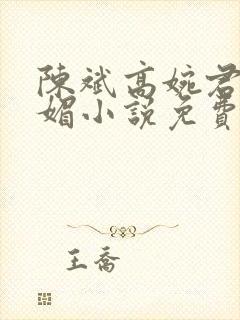 陳斌高婉君
媚小說免費
王喬